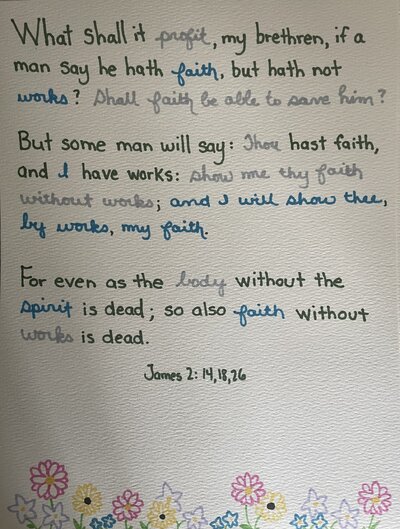 What shall it profit, my brethren, if a
man say he hath faith, but hath not
works? Shall faith be able to save him?
But some man will say: Thou hast faith,
and I have works: show me thy faith
without works; and I will show thee,
by works, my faith.
For even as the body without the
spirit is dead; so also faith without
works is dead.
James 2:14,18,26